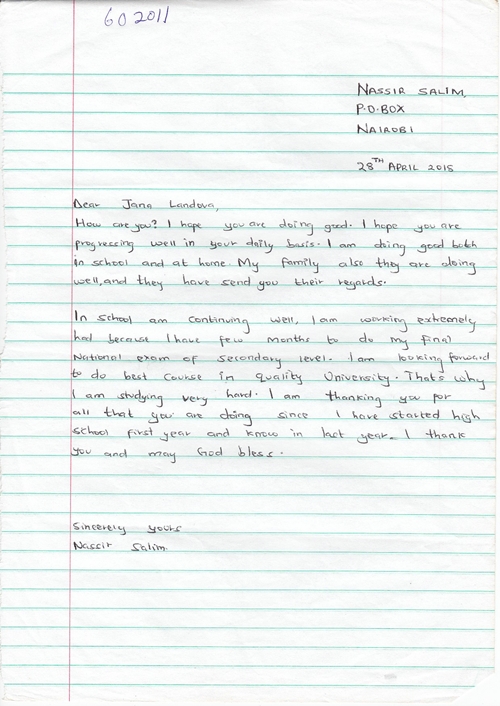 602011
NASSIR SALIM,
P.O.BOX
NAIROBI
28TH APRIL 2015
Dear Jana Landova,
How are you? I hope you are doing good. I hope you are
progressing well in your daily basis. I am doing good both
in school and at home. My family also they are doing
well, and they have send you their regards.
In school am continuing well, I am working extremely
had because I have few months to do my final
National exam of secondary level. I am looking forward
to do best course in quality University. That's why
I am studying very hard. I am thanking you for
all that you are doing since I have started high
school first year and know in last year. I thank
you and may God bless.
Sincerely yours
Nassir Salim.